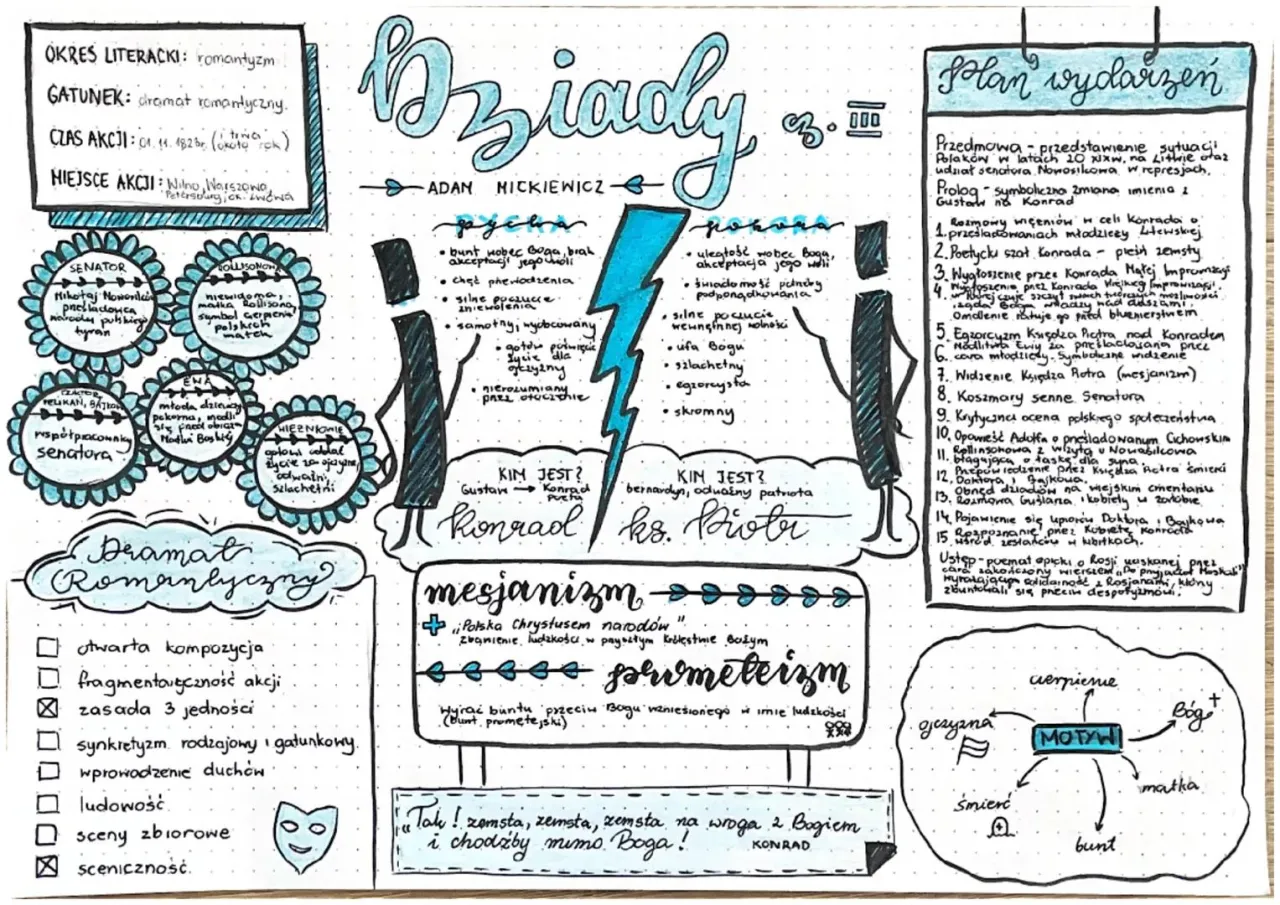 OKRES LITERACKI: romantyzm
GATUNEK: dramat romantyczny.
CZAS AKCJI: 01.11.1823r. (i trwa około rok)
MIEJSCE AKCJI: Wilno, Warszawa
Petersburg, ok. Lwowa
Dziady cz. III
ADAM MICKIEWICZ
PYCHA
• bunt wobec Boga, brak
akceptacji jego woli
• chęć przewodzenia
• silne poczucie
zniewolenia
• samotny, wyobcowany
• gotów poświęcić
życie dla
ojczyzny
• nierozumiany
przez otoczenie
POKORA
• uległość wobec Boga,
akceptacja jego woli
• świadomość potrzeby
podporządkowania
• silne poczucie
wewnętrznej wolności
• ufa Bogu
• szlachetny
• egzorcysta
• skromny
KIM JEST?
Gustaw → Konrad
poeta
Konrad
KIM JEST?
bernardyn, odważny patriota
ks. Piotr
SENATOR
Mikołaj Nowosilcow
prześladowca
narodu polskiego
tyran
ROLLISONOWA
niewidoma,
matka Rollisona,
symbol cierpienia
polskich
matek
DOKTOR,
PELIKAN, BAJKOW
współpracownicy
senatora
EWA
młoda dziewczy
pokorna, modli
się przed obrazem
Matki Boskiej
WIĘŹNIOWIE
gotowi oddać
życie za ojczyznę,
odważni,
szlachetni
Dramat
Romantyczny
otwarta kompozycja
fragmentaryczność akcji
zasada 3 jedności
synkretyzm rodzajowy i gatunkowy.
wprowadzenie duchów
ludowość
sceny zbiorowe
sceniczność.
mesjanizm
„Polska Chrystusem narodów"
zbawienie ludzkości w przyszłym Królestwie Bożym
prometeizm
Wyraz buntu przeciw Bogu wzniesionego w imię ludzkości
(bunt prometejski)
„Tak! zemsta, zemsta, zemsta na wroga z Bogiem
i chodźby mimo Boga!
KONRAD
Plan wydarzeń
Przedmowa - przedstawienie sytuacji
Polaków w latach 20 XIXw. na Litwie oraz
udział senatora Nowosilcowa w represjach.
Prolog - symboliczna zmiana imienia z
Gustaw na Konrad
Rozmowy więźniów w celi Konrada o
1. prześladowaniach młodzieży Litewskiej
2. Poetycki szał Konrada - pieśń zemsty
3. Wygłoszenie przez Konrada Małej Improwizacji
4. Wygłoszenie przez Konrada Wielkiej Improwizacji,
w której czuje szczyt swoich twórczych możliwości
i żąda Bogu władzy nad duszami.
Omdlenie ratuje go przed bluźnierstwem
5. Egzorcyzm Księdza Piotra nad Konradem
Modlitwa Ewy za prześladowaną przez
6. cara młodzieży. Symboliczne widzenie
7. Widzenie Księdza Piotra (mesjanizm)
8. Koszmary senne Senatora
9. Krytyczna ocena polskiego społeczeństwa
10. Opowieść Adolfa o prześladowanym Cichowskim
11. Rollinsonowa z wizytą u Nowosilcowa
błagająca o łaskę dla syna
12. Przepowiedzenie przez Księdza Piotra śmierci
Doktora i Bajkowa.
Obrzęd dziadów na wiejskim cmentarzu
13. Rozmowa Guślarza i kobiety w żałobie
14. Pojawienie się upiorów Doktora i Bajkowa
15. Rozpoznanie przez Kobietę Konrada
wśród zesłańców w kibitkach.
Ustęp - poemat epicki o Rosji uciskanej przez
cara zakończony wierszem „Do przyjaciół Moskali"
wyrażającym solidarność z Rosjanami, którzy
zbuntowali się przeciw despotyzmowi.
cierpienie
ojczyzna
Bóg
MOTYW
matka
śmierć
bunt